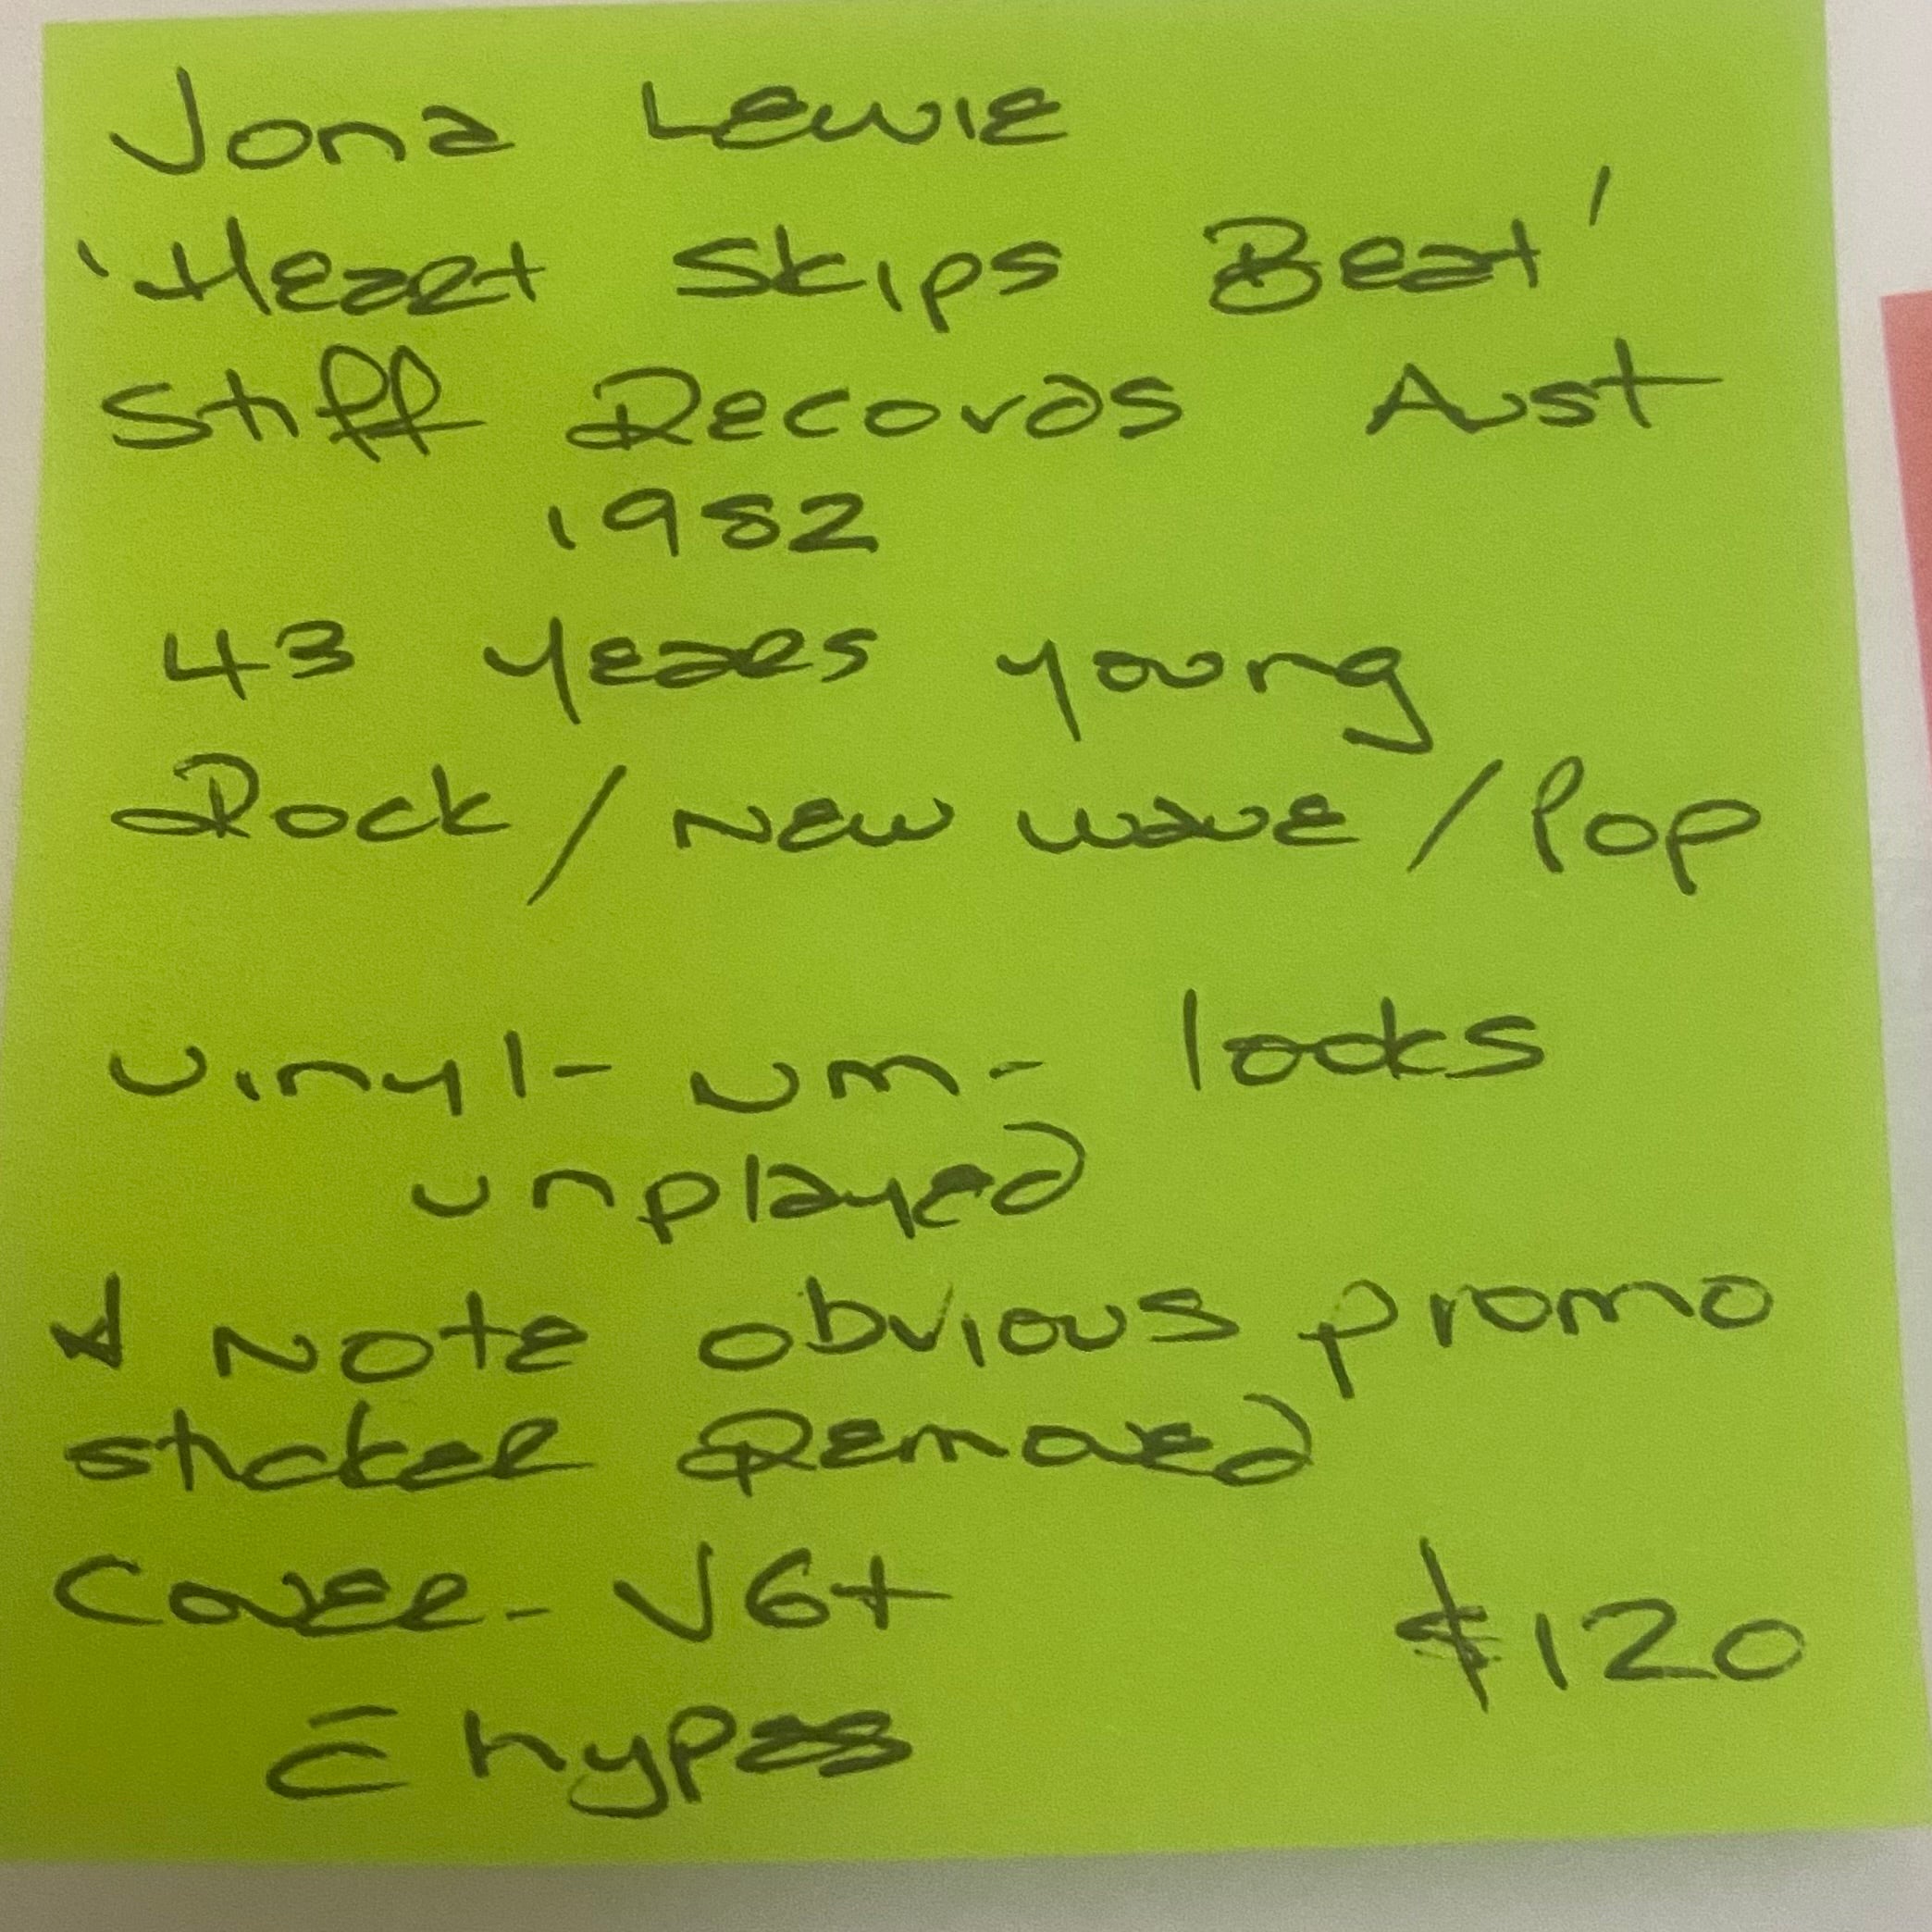 Jona Lewie
'Heart Skips Beat'
Stiff Records Aust
1982
43 years young
Rock / New wave / Pop
Vinyl- NM- looks
unplayed
* Note obvious promo
sticker removed
Cover- VG+
$120
c̄ hypes